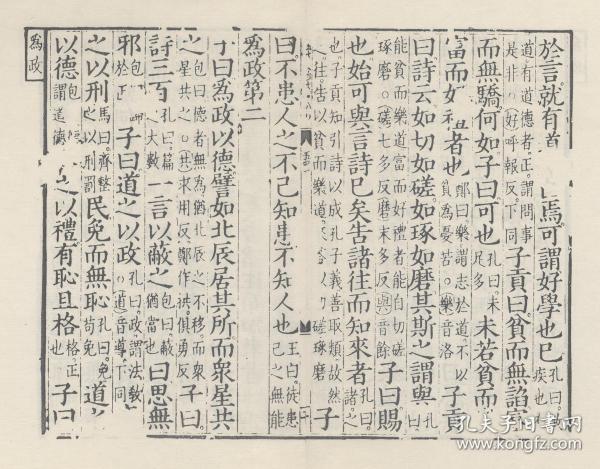 於言就有焉可謂好學也已孔曰疾也
道有道德者正謂問事是非好呼報反下同子貢曰貧而無諂
而無驕何如子曰可也孔曰未足多未若貧而
富而好者也鄭曰樂謂志於道不以貧為憂苦樂音洛子貢
曰詩云如切如磋如琢如磨其斯之謂與孔曰
能貧而樂道富而好禮者能自切磋琢磨磋七多反磨末多反與音餘子曰賜
也始可與言詩已矣告諸往而知來者孔曰諸之
也子貢知引詩以成孔子義善取類故然之往告以貧而樂道磋琢磨子
曰不患人之不己知患不知人也王曰徒患己之無能
為政第二
子曰為政以德譬如北辰居其所而衆星共
之包曰德者無為猶北辰之不移而衆星共之共求用反鄭作拱俱勇反子曰
詩三百孔曰篇之大數一言以蔽之包曰蔽猶當也曰思無
邪包於正子曰道之以政孔曰政謂法教道音導下同
之以刑馬曰齊整之以刑罰民免而無恥孔曰免苟免道之
以德包謂道德之以禮有恥且格格正也子曰
為政
孔夫子旧书网
www.kongfz.com